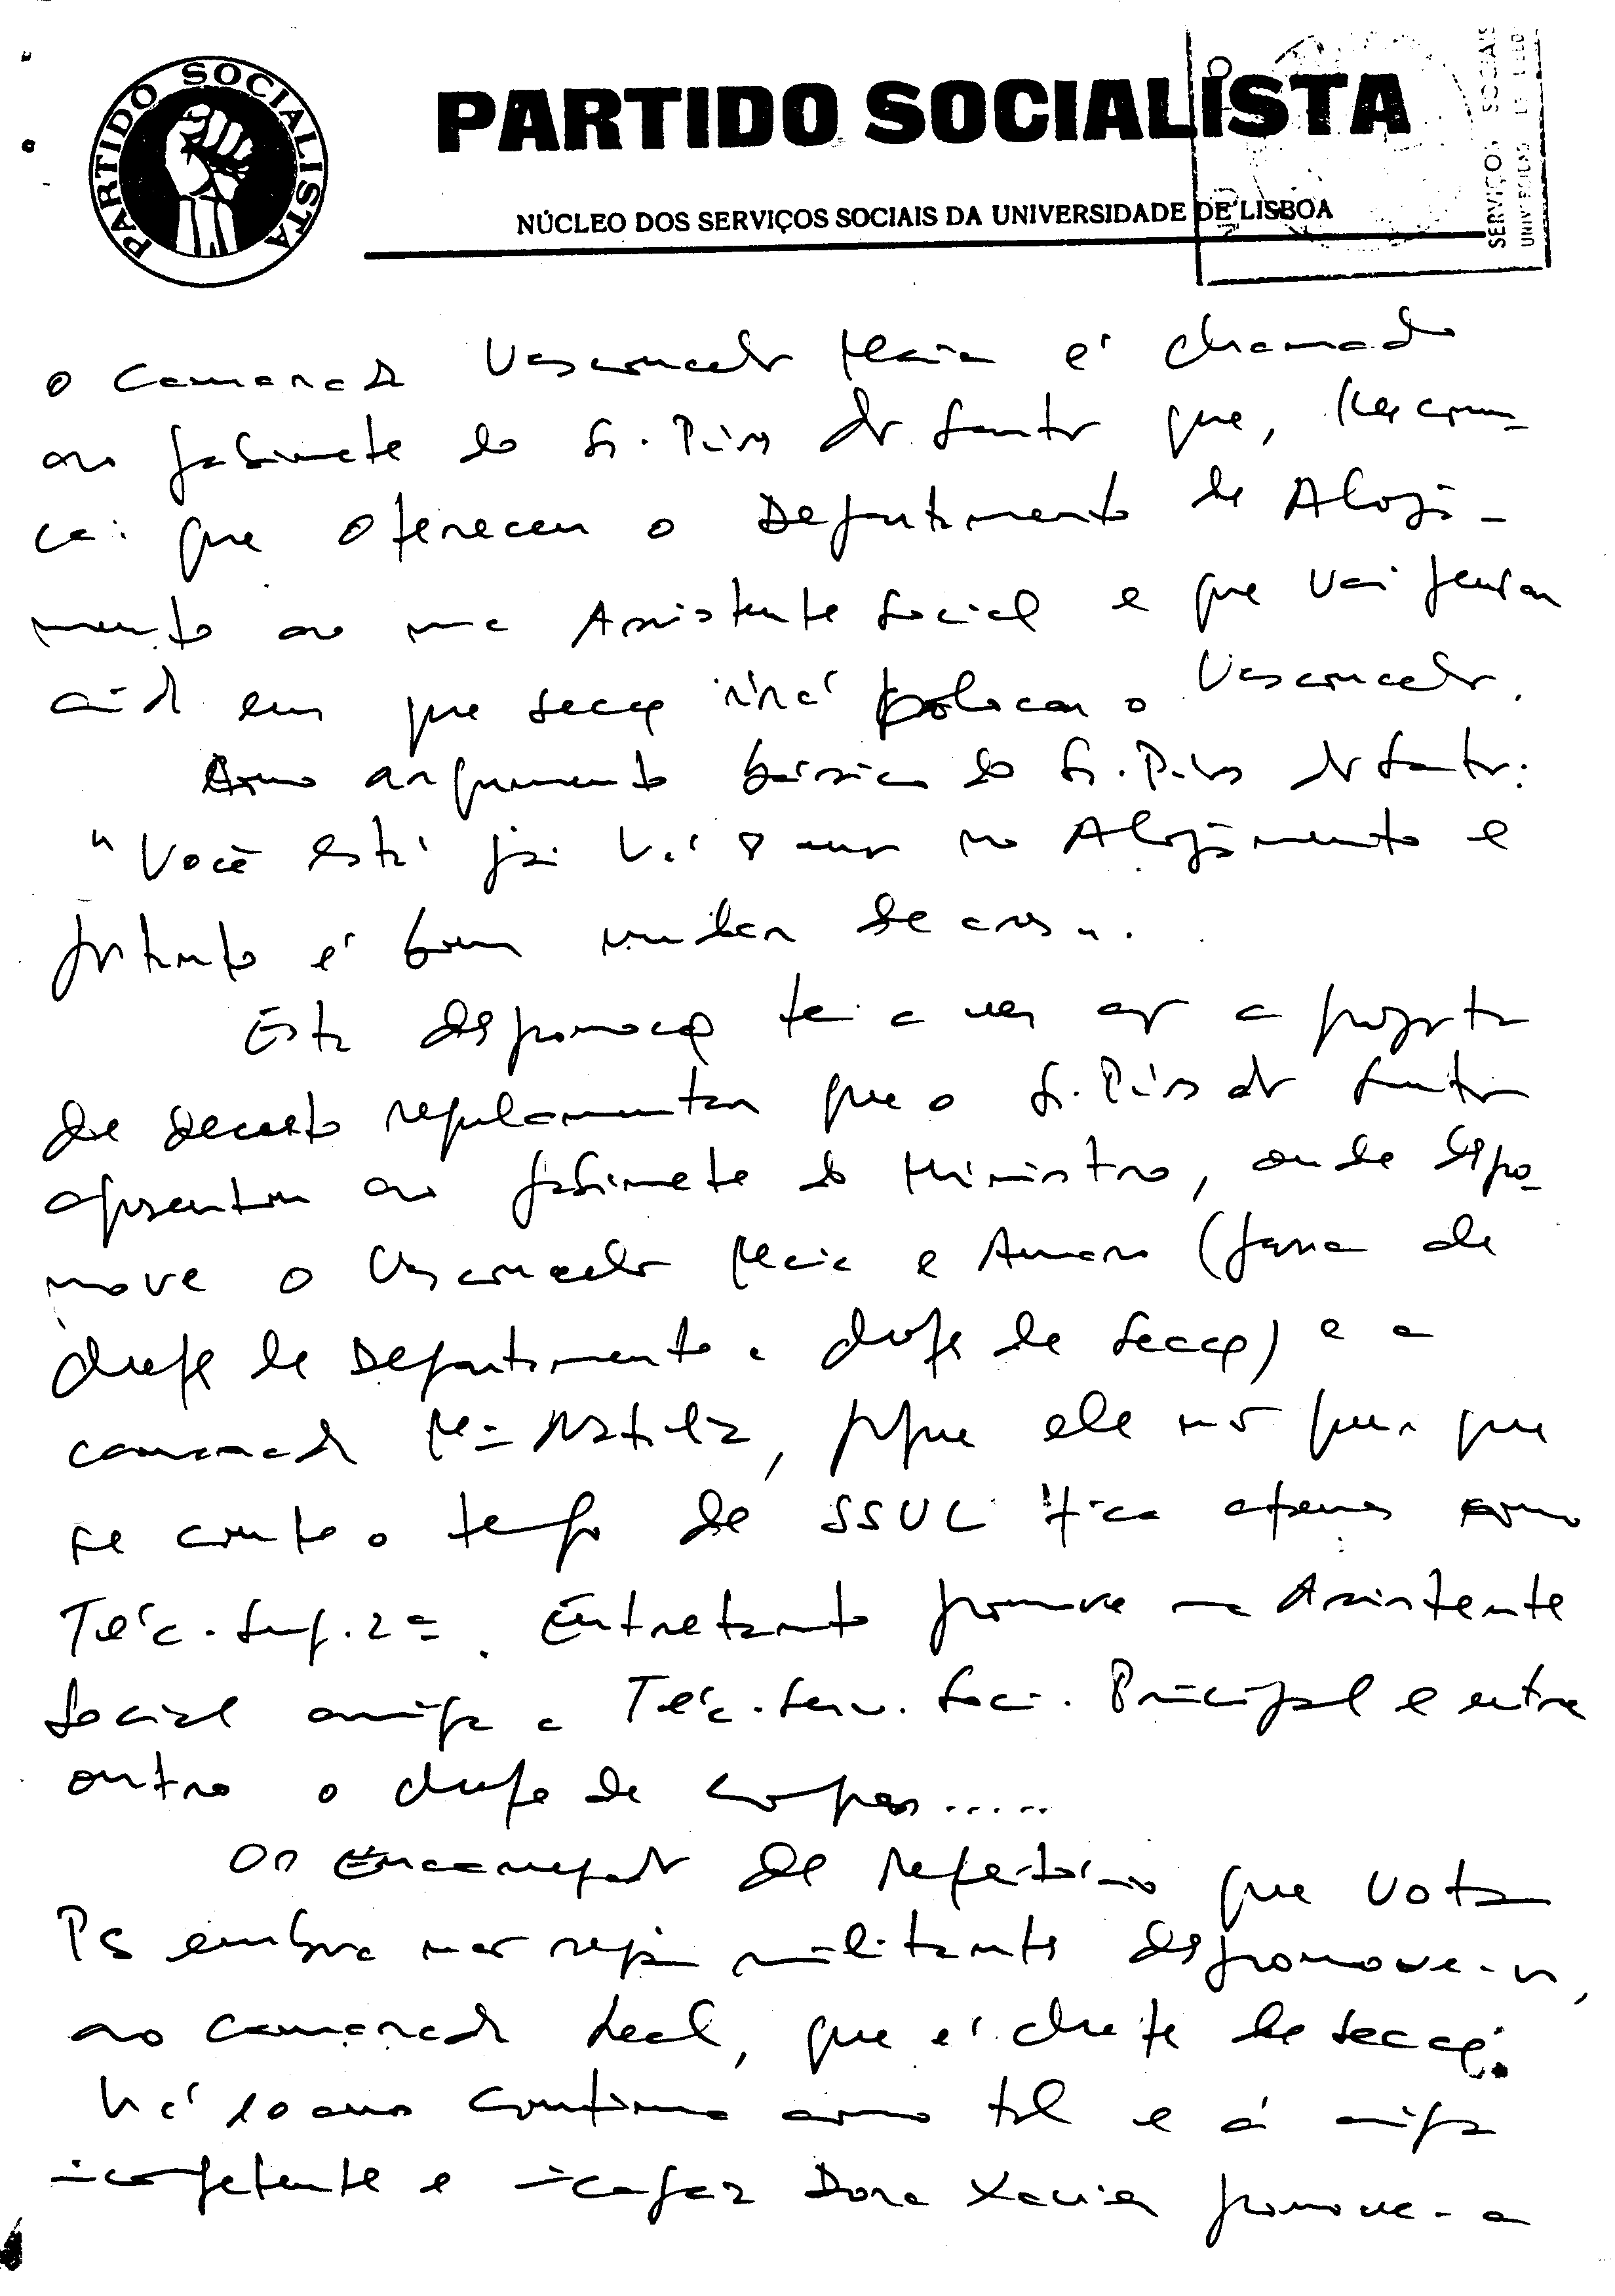 PARTIDO SOCIALISTA
PARTIDO SOCIALISTA
NÚCLEO DOS SERVIÇOS SOCIAIS DA UNIVERSIDADE DE LISBOA
SERVIÇOS SOCIAIS
o Camarada Vasconcelos Maia é chamado
ao gabinete do Sr. Pires dos Santos que, lhe comu-
ca: que ofereceu o Departamento de Aloja-
mento ao uma Assistente Social e que vai pensar
ainda em que secção irá colocar o Vasconcelos.
Como argumento básico do Sr. Pires dos Santos:
"Você está já há 8 anos no Alojamento e
portanto é bom mudar de ares".
Esta despromoção tem a ver com a proposta
de decreto regulamentar que o Sr. Pires dos Santos
apresentou ao gabinete do Ministro, onde despro-
move o Vasconcelos Maia e Amaro (passa de
chefe de Departamento a chefe de secção) e a
camarada Mª Natália, porque ele não quer que
se conte o tempo de SSUL fica apenas como
Téc. Sup. 2ª. Entretanto promove uma Assistente
Social amiga a Téc. Serv. Soci. Principal e entre
outro o chefe de compras.....
Os Encarregados de refeitório que vota
PS embora não seja militante despromove-os,
ao camarada Leal, que é chefe de secção
há 10 anos continua como tal e à amiga
incompetente e incapaz Dora Xavier promove-a